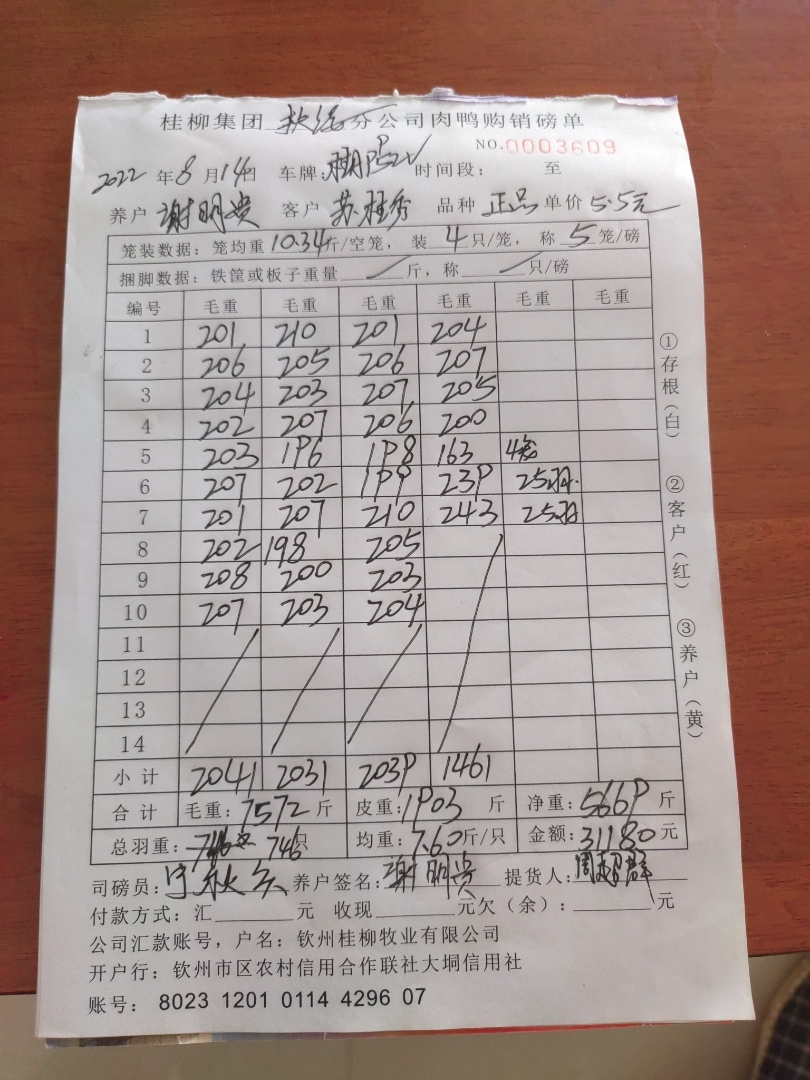 桂柳集团 钦强分公司肉鸭购销磅单
NO.0003609
2022 年 8 月 14日 车牌: 时间段: 至
养户 谢明贵 客户 苏桂秀 品种 正品 单价 5.5元
笼装数据: 笼均重 10.34斤/空笼, 装 4 只/笼, 称 5 笼/磅
捆脚数据: 铁筐或板子重量 / 斤, 称 / 只/磅
编号 毛重 毛重 毛重 毛重 毛重 毛重
1 201 210 201 204
2 206 205 206 207
3 204 203 207 205
4 202 207 206 200
5 203 196 198 163 4笼
6 207 202 199 239 25羽
7 201 207 210 243 25羽
8 202 198 205
9 208 200 203
10 207 203 204
11
12
13
14
小计 2041 2031 2039 1461
合计 毛重: 7572 斤 皮重: 1903 斤 净重: 5669 斤
总羽重: 746 只 均重: 7.60斤/只 金额: 31180 元
司磅员: 养户签名: 谢明贵 提货人: 周超群
付款方式: 汇 元 收现 元欠(余): 元
公司汇款账号, 户名: 钦州桂柳牧业有限公司
开户行: 钦州市区农村信用合作联社大垌信用社
账号: 8023 1201 0114 4296 07
①存根(白) ②客户(红) ③养户(黄)